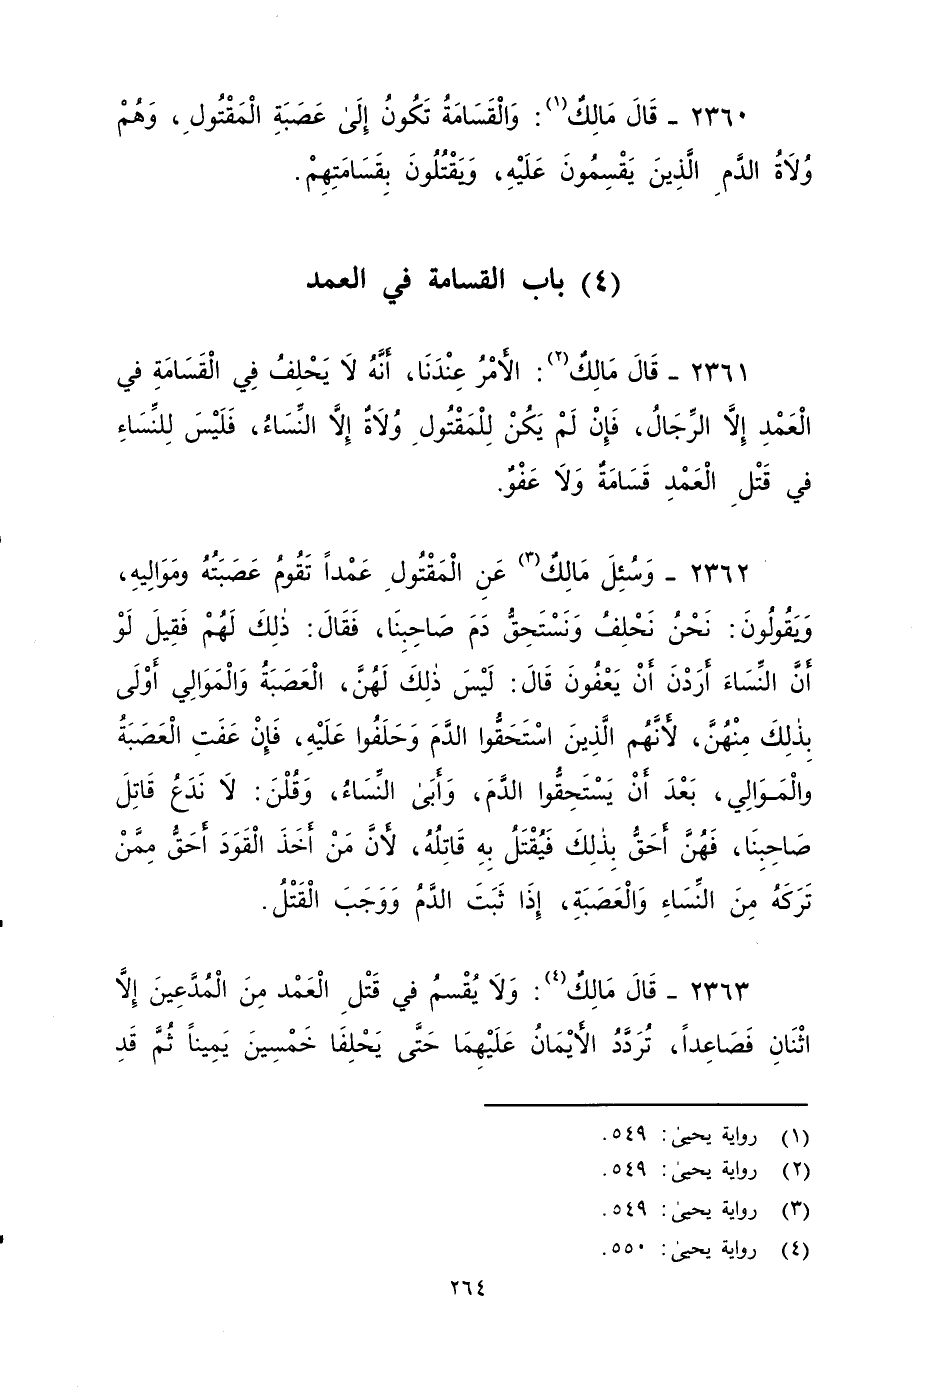 ٢٣٦٠ ـ قَالَ مَالِكٌ(١): وَالْقَسَامَةُ تَكُونُ إِلَىٰ عَصَبَةِ الْمَقْتُولِ، وَهُمْ
وُلَاةُ الدَّمِ الَّذِينَ يَقْسِمُونَ عَلَيْهِ، وَيَقْتُلُونَ بِقَسَامَتِهِمْ.
(٤) باب القسامة في العمد
٢٣٦١ ـ قَالَ مَالِكٌ(٢): الأَمْرُ عِنْدَنَا، أَنَّهُ لَا يَحْلِفُ فِي الْقَسَامَةِ في
الْعَمْدِ إِلَّا الرِّجَالُ، فَإِنْ لَمْ يَكُنْ لِلْمَقْتُولِ وُلَاةٌ إِلَّا النِّسَاءُ، فَلَيْسَ لِلنِّسَاءِ
في قَتْلِ الْعَمْدِ قَسَامَةٌ وَلَا عَفْوٌ.
٢٣٦٢ ـ وَسُئِلَ مَالِكٌ(٣) عَنِ الْمَقْتُولِ عَمْداً تَقُومُ عَصَبَتُهُ ومَوَالِيهِ،
وَيَقُولُونَ: نَحْنُ نَحْلِفُ وَنَسْتَحِقُّ دَمَ صَاحِبِنَا، فَقَالَ: ذٰلِكَ لَهُمْ فَقِيلَ لَوْ
أَنَّ النِّسَاءَ أَرَدْنَ أَنْ يَعْفُونَ قَالَ: لَيْسَ ذٰلِكَ لَهُنَّ، الْعَصَبَةُ وَالْمَوَالِي أَوْلَى
بِذٰلِكَ مِنْهُنَّ، لأَنَّهُم الَّذِينَ اسْتَحَقُّوا الدَّمَ وَحَلَفُوا عَلَيْهِ، فَإِنْ عَفَتِ الْعَصَبَةُ
والْمَوَالِي، بَعْدَ أَنْ يَسْتَحِقُّوا الدَّمَ، وَأَبَىٰ النِّسَاءُ، وَقُلْنَ: لَا نَدَعُ قَاتِلَ
صَاحِبِنَا، فَهُنَّ أَحَقُّ بِذٰلِكَ فَيُقْتَلُ بِهِ قَاتِلُهُ، لأَنَّ مَنْ أَخَذَ الْقَوَدَ أَحَقُّ مِمَّنْ
تَرَكَهُ مِنَ النِّسَاءِ وَالْعَصَبَةِ، إِذَا ثَبَتَ الدَّمُ وَوَجَبَ الْقَتْلُ.
٢٣٦٣ ـ قَالَ مَالِكٌ(٤): وَلَا يُقْسمُ في قَتْلِ الْعَمْد مِنَ الْمُدَّعِينَ إِلَّا
اثْنَانِ فَصَاعِداً، تُرَدَّدُ الأَيْمَانُ عَلَيْهِمَا حَتَّى يَحْلِفَا خَمْسِينَ يَمِيناً ثُمَّ قَدِ
(١) رواية يحيىٰ: ٥٤٩.
(٢) رواية يحيىٰ: ٥٤٩.
(٣) رواية يحيىٰ: ٥٤٩.
(٤) رواية يحيىٰ: ٥٥٠.
٢٦٤